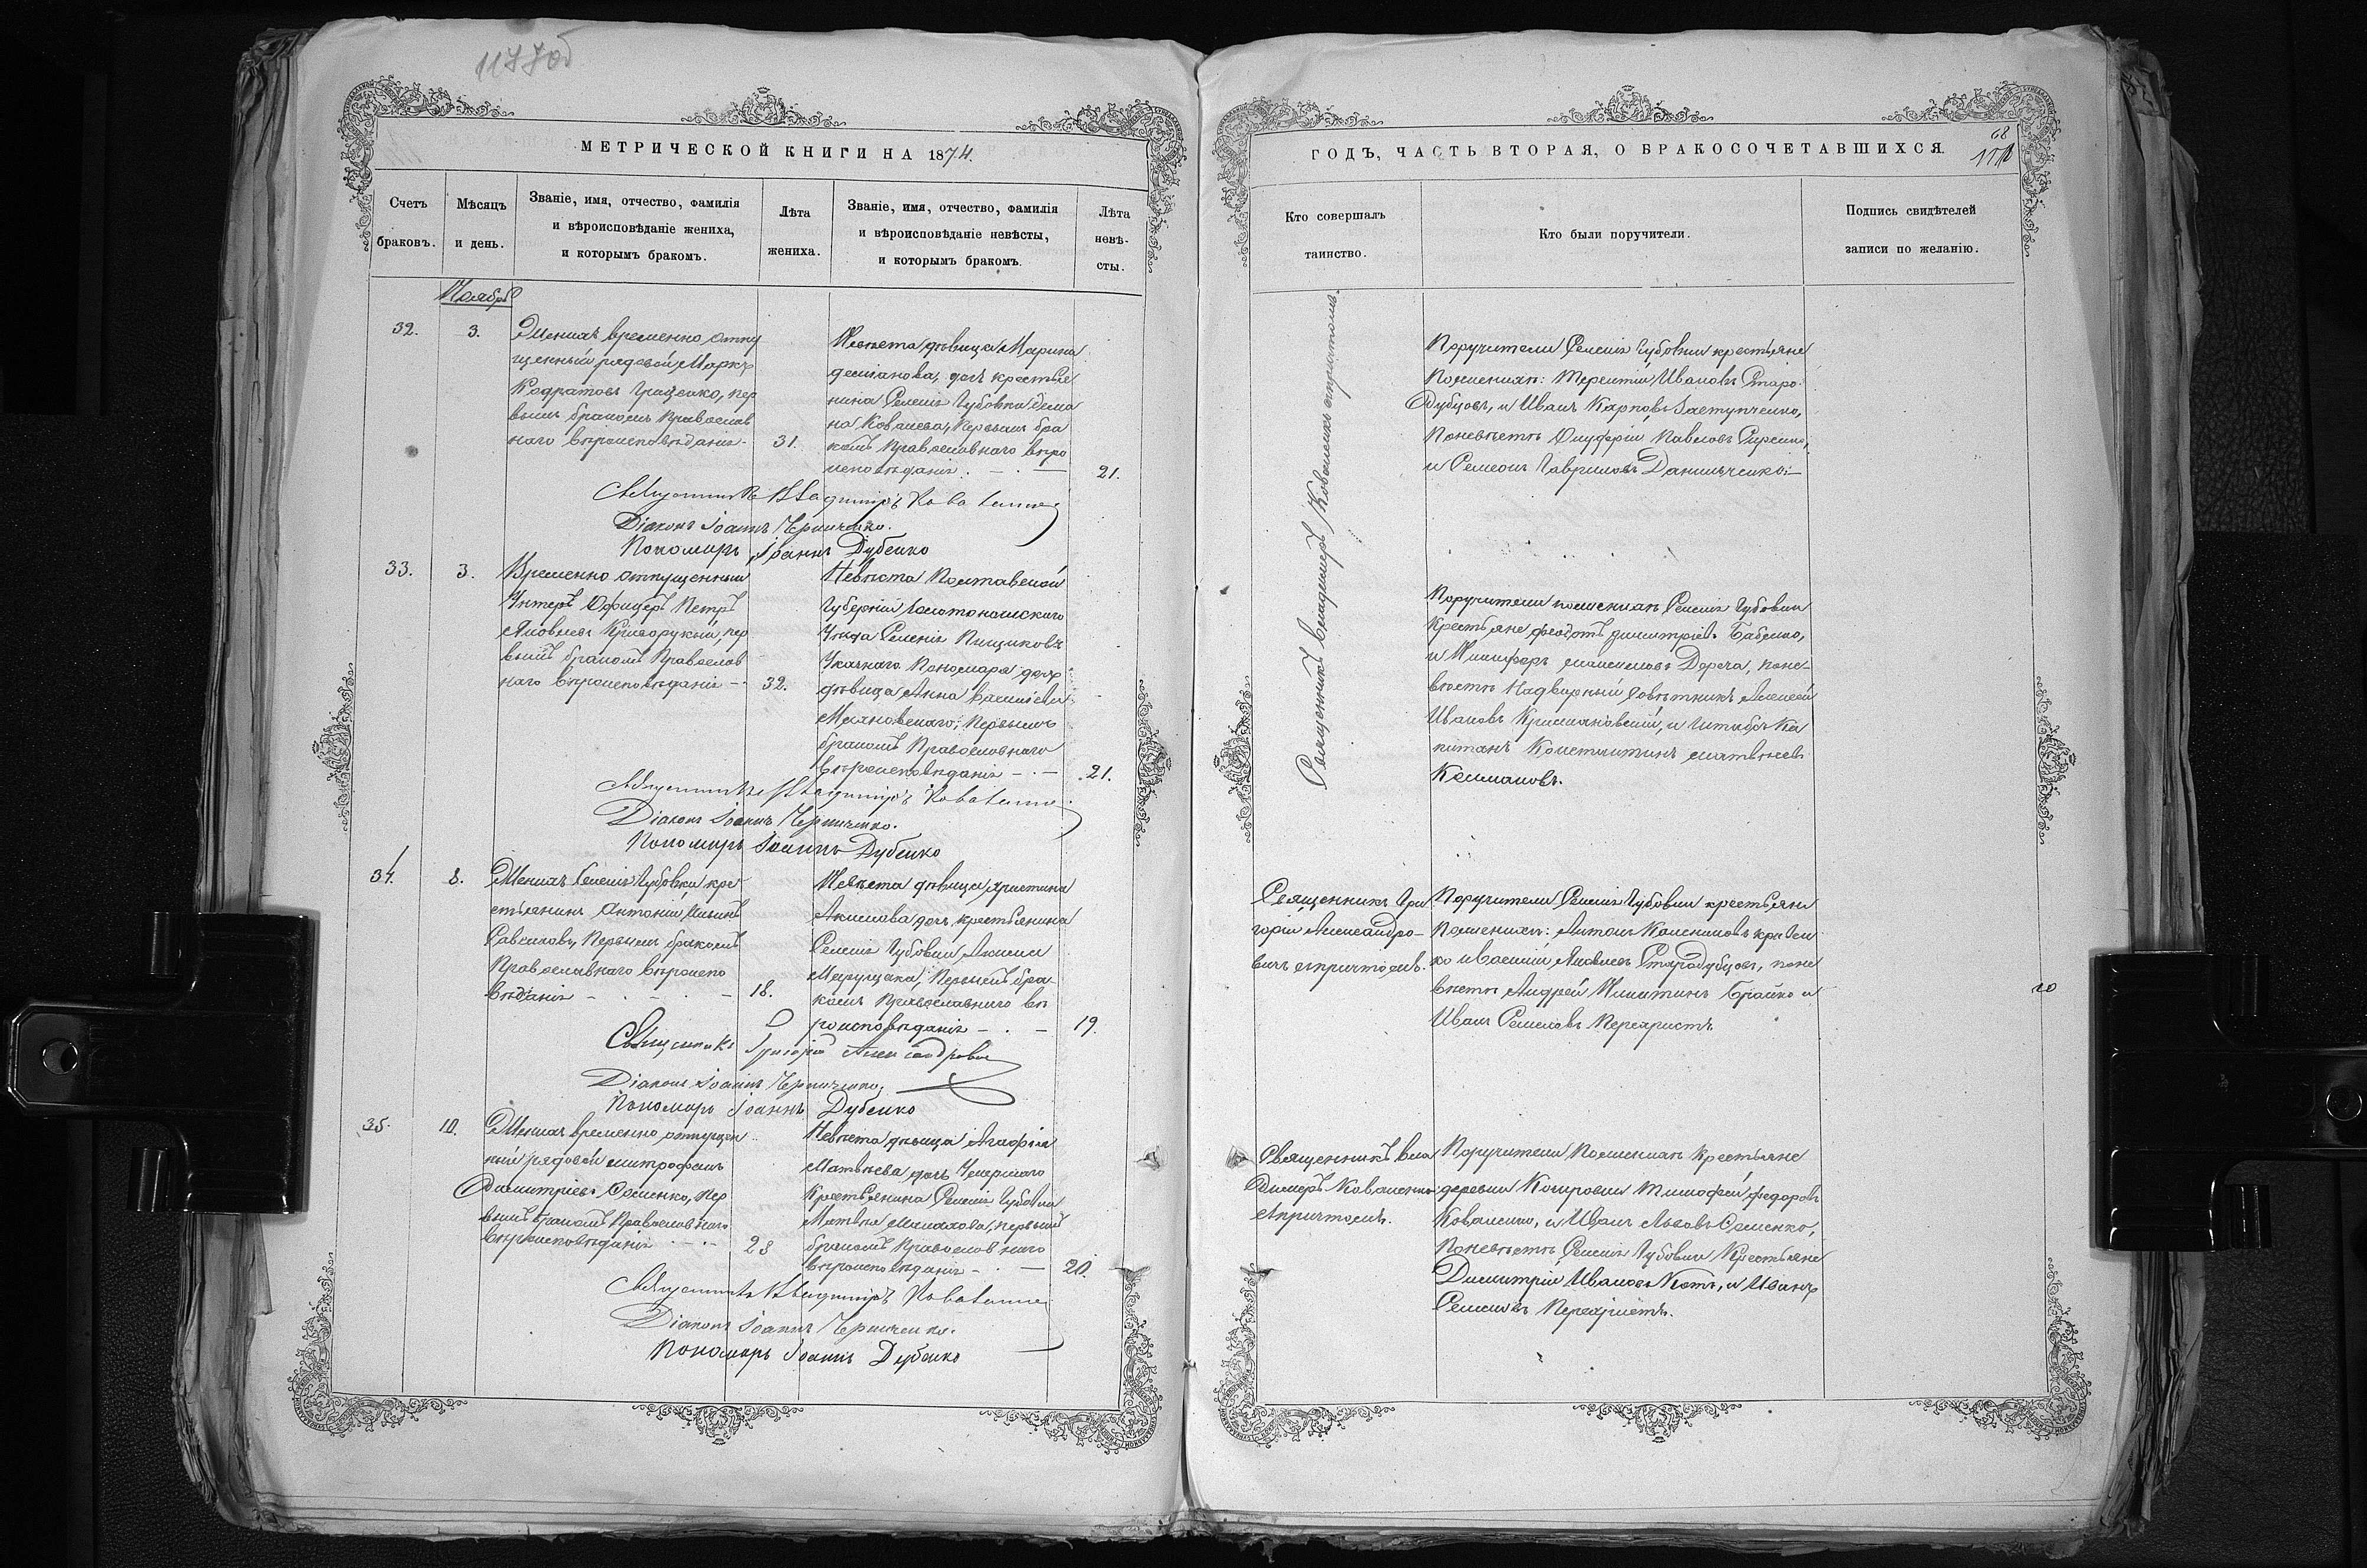 1177 об
МЕТРИЧЕСКОЙ КНИГИ НА 1874.
Счетъ браковъ.
Мѣсяцъ и день.
Званіе, имя, отчество, фамилія
и вѣроисповѣданіе жениха,
и которымъ бракомъ.
Лѣта жениха.
Званіе, имя, отчество, фамилія
и вѣроисповѣданіе невѣсты,
и которымъ бракомъ.
Лѣта невѣ-
сты.
Ноябрь
32.
3.
Женихъ временно отпу
щенный рядовой Маркъ
Кодратовъ Грищенко, пер
вымъ бракомъ Православ
наго вѣроисповѣданія
31.
Невѣста дѣвица Марина
деміанова, дочъ крестья
нина Селенія Губовки деміа
на Ковалева, Первымъ бра
комъ Православнаго вѣро
исповѣданія
21.
Священникъ Владиміръ Коваленко
Діаконъ Іоаннъ Черниченко.
Пономарь Іоаннъ Дубенко
33.
3.
Временно отпущенный
Унтеръ Офицеръ Петръ
Яковлевъ Криворукый, пер
вымъ бракомъ Православ
наго вѣроисповѣданія
32.
Невѣста Полтавской
Губерніи Золотоношскаго
Уѣзда Селенія Пищиковъ
Указнаго Пономаря дочь
дѣвица Анна
Первымъ
бракомъ Православнаго
вѣроисповѣданія
21.
Священникъ Владиміръ Коваленко
Діаконъ Іоаннъ Черниченко.
Пономарь Іоаннъ Дубенко
34.
8.
Женихъ Селенія Губовки кре
стьянинъ Антоній
Первымъ бракомъ
Православнаго вѣроиспо
вѣданія
18.
Невѣста дѣвица Христина
Акимова дочь крестьянина
Селенія Губовки Акима
Марущака, Первымъ бра
комъ Православнаго вѣ
роисповѣданія
19.
Священникъ Григорій Александровичъ
Діаконъ Іоаннъ Черниченко.
Пономарь Іоаннъ Дубенко
35.
10.
Женихъ временно отпущен
ный рядовой митрофанъ
Димитріевъ Семенко, пер
вымъ бракомъ Православнаго
вѣроисповѣданія
28
Невѣста дѣвица Агафія
Матвѣева дочъ Умершаго
Крестьянина Селенія Губовки
Матвѣя первымъ
бракомъ Православнаго
вѣроисповѣданія
20.
Священникъ Владиміръ Коваленко
Діаконъ Іоаннъ Черниченко.
Пономарь Іоаннъ Дубенко
ГОДЪ, ЧАСТЬ ВТОРАЯ, О БРАКОСОЧЕТАВШИХСЯ.
68
Кто совершалъ
таинство.
Кто были поручители.
Подпись свидѣтелей
записи по желанію.
Священникъ владимеръ Коваленко спричтомъ.
Поручители Селенія Губовки крестьяне
Поженихѣ: Терентій Ивановъ Старо-
дубцовъ, и Иванъ Карповъ Заступченко,
Поневѣстѣ Онуфрій Павловъ
и Семеонъ Гавриловъ Данильченко.
Поручители поженихѣ Селенія Губовки
Крестьяне феодотъ димитріевъ Бабенко,
и Никифоръ максимовъ поне-
вѣстѣ Надворный совѣтникъ Алексѣй
Ивановъ и Штабсъ Ка
питанъ Константинъ матвѣевъ
Священникъ Гри
горій Александро-
вичъ спричтомъ.
Поручители Селенія Губовки крестьяне
Поженихѣ: Антонъ
ко и Василій Яковлевъ Стародубцовъ, поне
вѣстѣ Андрей Никитинъ Брайко и
Иванъ Семеновъ Перехристъ
20
Священникъ вла
димеръ Коваленко
спричтомъ.
Поручители Поженихѣ Крестьяне
деревни Тимофей федоровъ
Коваленко, и Иванъ Львовъ Семенко,
Поневѣстѣ Селенія Губовки Крестьяне
Димитрій Ивановъ и Иванъ
Семеновъ Перехристъ.